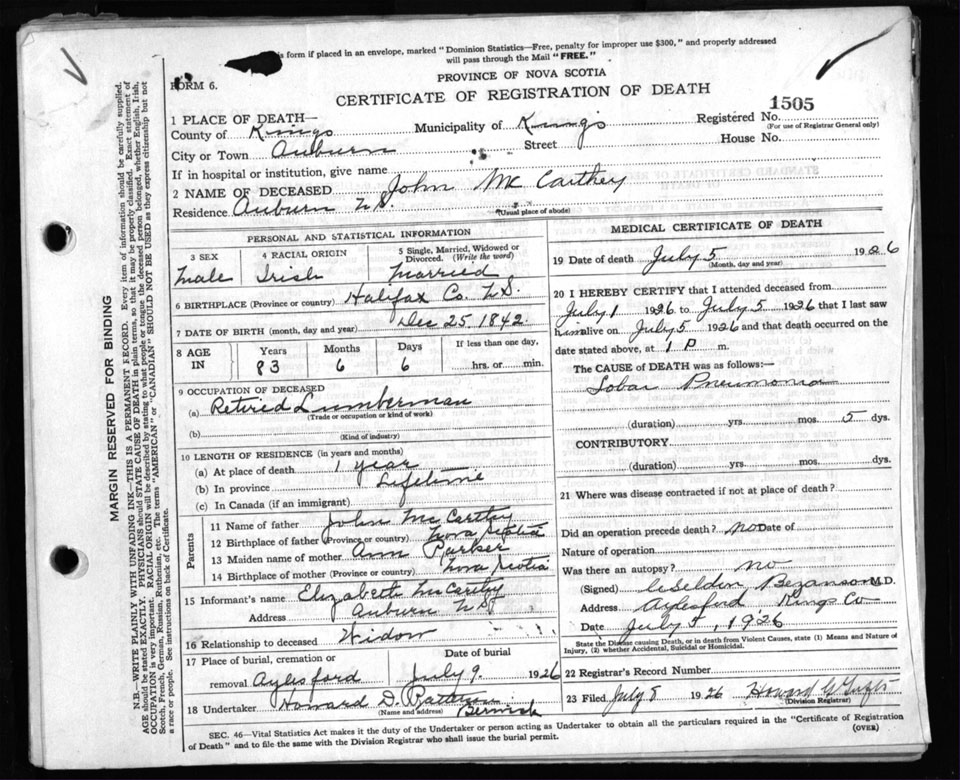 is form if placed in an envelope, marked "Dominion Statistics—Free, penalty for improper use $300," and properly addressed
will pass through the Mail "FREE."
FORM 6.
PROVINCE OF NOVA SCOTIA
CERTIFICATE OF REGISTRATION OF DEATH
1 PLACE OF DEATH—
County of Kings Municipality of Kings Registered No. 1505
(For use of Registrar General only)
City or Town Auburn Street House No.
If in hospital or institution, give name
2 NAME OF DECEASED John McCarthey
Residence Auburn N.S.
(Usual place of abode)
PERSONAL AND STATISTICAL INFORMATION
3 SEX Male
4 RACIAL ORIGIN Irish
5 Single, Married, Widowed or Divorced. (Write the word) Married
6 BIRTHPLACE (Province or country) Halifax Co. N.S.
7 DATE OF BIRTH (month, day and year) Dec 25. 1842
8 AGE IN Years 83 Months 6 Days 6 If less than one day, hrs. or min.
9 OCCUPATION OF DECEASED
(a) Retired Lumberman
(Trade or occupation or kind of work)
(b)
(Kind of industry)
10 LENGTH OF RESIDENCE (in years and months)
(a) At place of death 1 year
(b) In province Lifetime
(c) In Canada (if an immigrant)
Parents
11 Name of father John McCarthy
12 Birthplace of father (Province or country) Nova Scotia
13 Maiden name of mother Ann Parker
14 Birthplace of mother (Province or country) Nova Scotia
15 Informant's name Elizabeth McCarthy
Address Auburn N.S.
16 Relationship to deceased Widow
17 Place of burial, cremation or removal Aylesford
Date of burial July 9. 1926
18 Undertaker Howard D. Berwick
(Name and address)
MEDICAL CERTIFICATE OF DEATH
19 Date of death July 5 1926
(Month, day and year)
20 I HEREBY CERTIFY that I attended deceased from
July 1 1926 to July 5 1926 that I last saw
him alive on July 5 1926 and that death occurred on the
date stated above, at 1 P m.
The CAUSE OF DEATH was as follows:—
Lobar Pneumonia
(duration) yrs. mos. 5 dys.
CONTRIBUTORY
(duration) yrs. mos. dys.
21 Where was disease contracted if not at place of death?
Did an operation precede death? no Date of
Nature of operation
Was there an autopsy? no
(Signed) Seldin Bezanson M.D.
Address Aylesford Kings Co
Date July 5, 1926
State the Disease causing Death, or in death from Violent Causes, state (1) Means and Nature of
Injury, (2) whether Accidental, Suicidal or Homicidal.
22 Registrar's Record Number
23 Filed July 8 1926 Howard
(Division Registrar)
SEC. 46—Vital Statistics Act makes it the duty of the Undertaker or Person acting as Undertaker to obtain all the particulars required in the "Certificate of Registration
of Death" and to file the same with the Division Registrar who shall issue the burial permit.
(OVER)
MARGIN RESERVED FOR BINDING
N.B.—WRITE PLAINLY WITH UNFADING INK—THIS IS A PERMANENT RECORD. Every item of information should be carefully supplied.
AGE should be stated EXACTLY. PHYSICIANS should STATE CAUSE OF DEATH in plain terms, so that it may be properly classified. Exact statement of
OCCUPATION is very important. RACIAL ORIGIN will be described by stating to what people or tongue the deceased person belonged, whether English, Irish,
Scotch, French, German, Russian, Ruthenian, etc. The terms "AMERICAN" or "CANADIAN" SHOULD NOT BE USED as they express citizenship but not
a race or people. See instructions on back of Certificate.